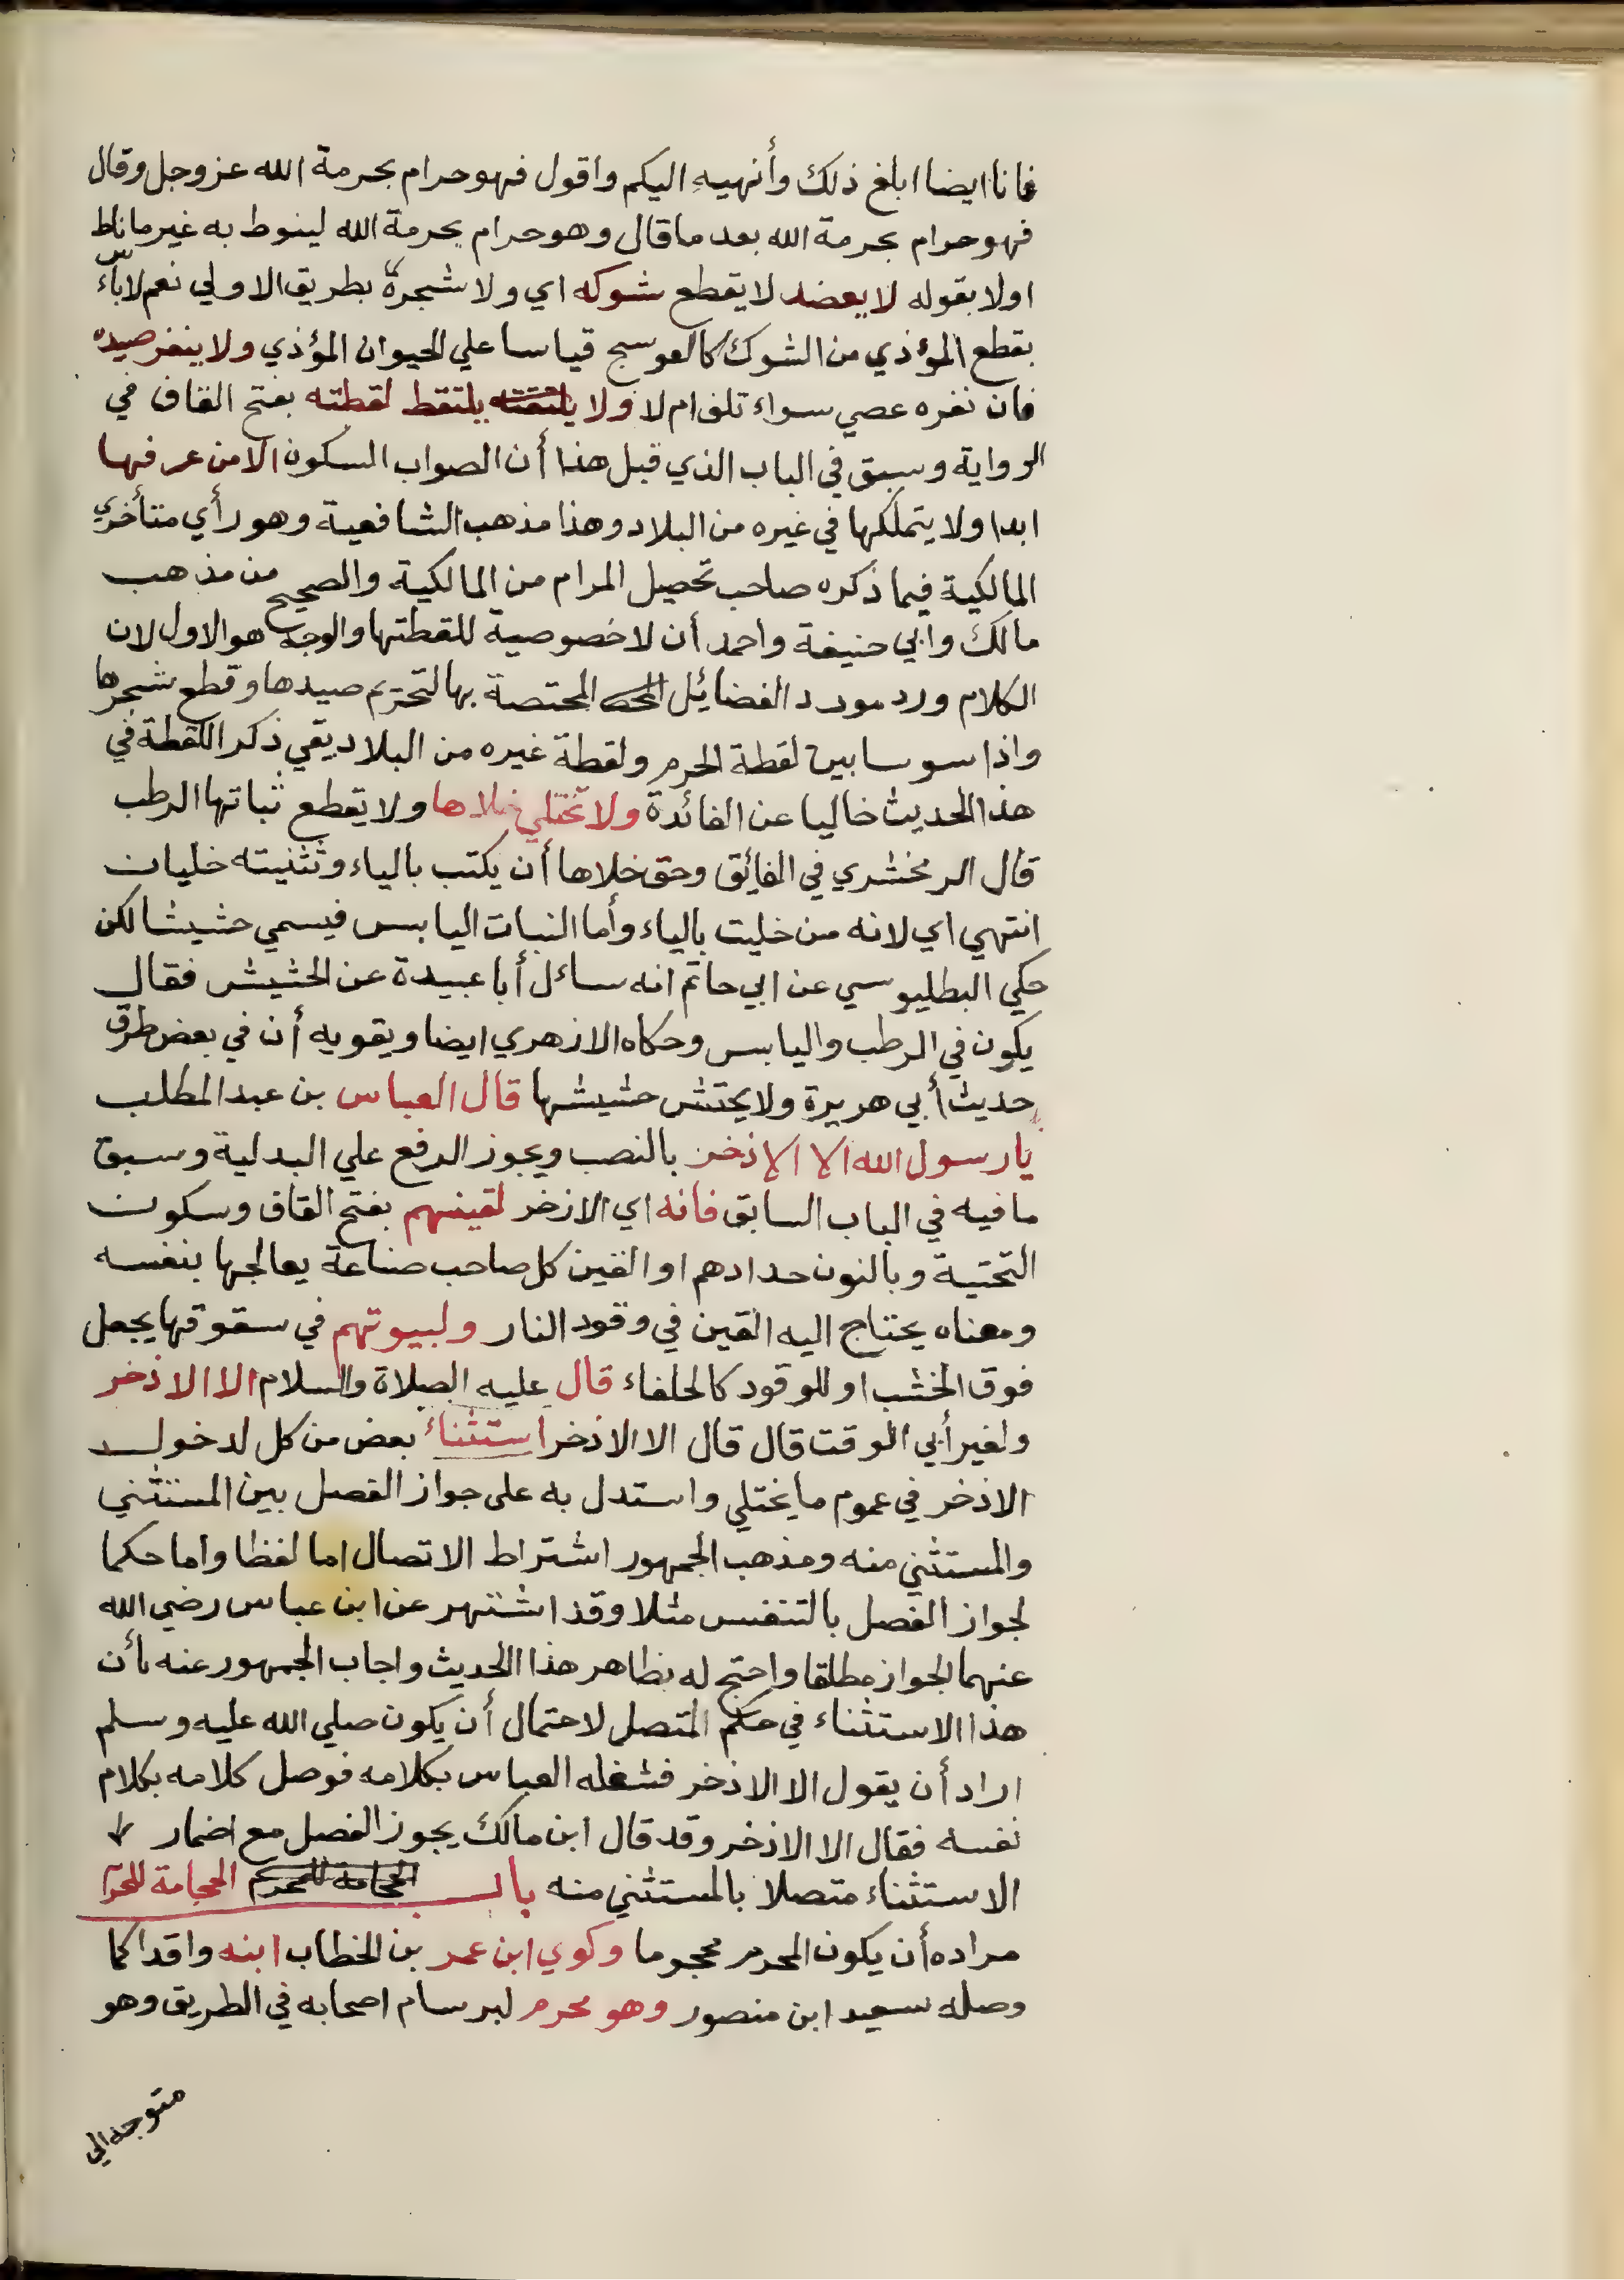 فانا ايضا ابلغ ذلك وأنهيه اليكم واقول فهو حرام بحرمة الله عز وجل وقال
فهو حرام بحرمة الله بعد ما قال وهو حرام بحرمة الله لينوط به غير ما ناط
اولا بقوله لا يعضد لا يقطع شوكه اي ولا شجرة بطريق الاولي نعم لا بأس
بقطع المؤذي من الشوك كالعوسج قياسا علي الحيوان المؤذي ولا ينفر صيده
فان نفره عصي سواء تلف ام لا ولا يلتقط لقطته بفتح القاف في
الرواية وسبق في الباب الذي قبل هذا أن الصواب السكون الا من عرفها
ابدا ولا يتملكها في غيره من البلاد وهذا مذهب الشافعية وهو رأي متأخري
المالكية فيما ذكره صاحب تحصيل المرام من المالكية والصحيح من مذهب
مالك وابي حنيفة واحمد أن لا خصوصية للقطتها والوجه هو الاول لان
الكلام ورد مورد الفضائل المختصة بها لتحريم صيدها وقطع شجرها
واذا سوسا بين لقطة الحرم ولقطة غيره من البلاد يقي ذكر اللقطة في
هذا الحديث خاليا عن الفائدة ولا تختلي خلاها ولا يقطع نباتها الرطب
قال الزمخشري في الفائق وحق خلاها أن يكتب بالياء وتثنيته خليان
انتهي اي لانه من خليت بالياء وأما النبات اليابس فيسمي حشيشا لكن
حكي البطليوسي عن ابي حاتم انه سائل أبا عبيدة عن الحشيش فقال
يكون في الرطب واليابس وحكاه الازهري ايضا ويقويه أن في بعض طرق
حديث أبي هريرة ولا يحتش حشيشها قال العباس بن عبد المطلب
يا رسول الله الا الاذخر بالنصب ويجوز الرفع علي البدلية وسبق
ما فيه في الباب السابق فانه اي الازخر لقينهم بفتح القاف وسكون
التحتية وبالنون حدادهم او القين كل صاحب صناعة يعالجها بنفسه
ومعناه يحتاج اليه القين في وقود النار ولبيوتهم في سقوقها يجعل
فوق الخشب او للوقود كالحلفاء قال عليه الصلاة والسلام الا الاذخر
ولغير أبي الوقت قال قال الا الاذخر استثناء بعض من كل لدخول
الاذخر في عموم ما يختلي واستدل به على جواز الفصل بين المستثني
والمستثني منه ومذهب الجمهور اشتراط الاتصال اما لفظا واما حكما
لجواز الفصل بالتنفس مثلا وقد اشتهر عن ابن عباس رضي الله
عنهما الجواز مطلقا واحتج له بظاهر هذا الحديث واجاب الجمهور عنه بأن
هذا الاستثناء في حكم المتصل لاحتمال أن يكون صلي الله عليه وسلم
اراد أن يقول الا الاذخر فشغله العباس بكلامه فوصل كلامه بكلام
نفسه فقال الا الاذخر وقد قال ابن مالك يجوز الفصل مع اضمار
الاستثناء متصلا بالمستثني منه باب الحجامة للمحرم الحجامة للمحرم
مراده أن يكون المحرم محجوما وكوي ابن عمر بن الخطاب ابنه واقدا كما
وصله سعيد ابن منصور وهو محرم لبرسام اصحابه في الطريق وهو
متوجه الي